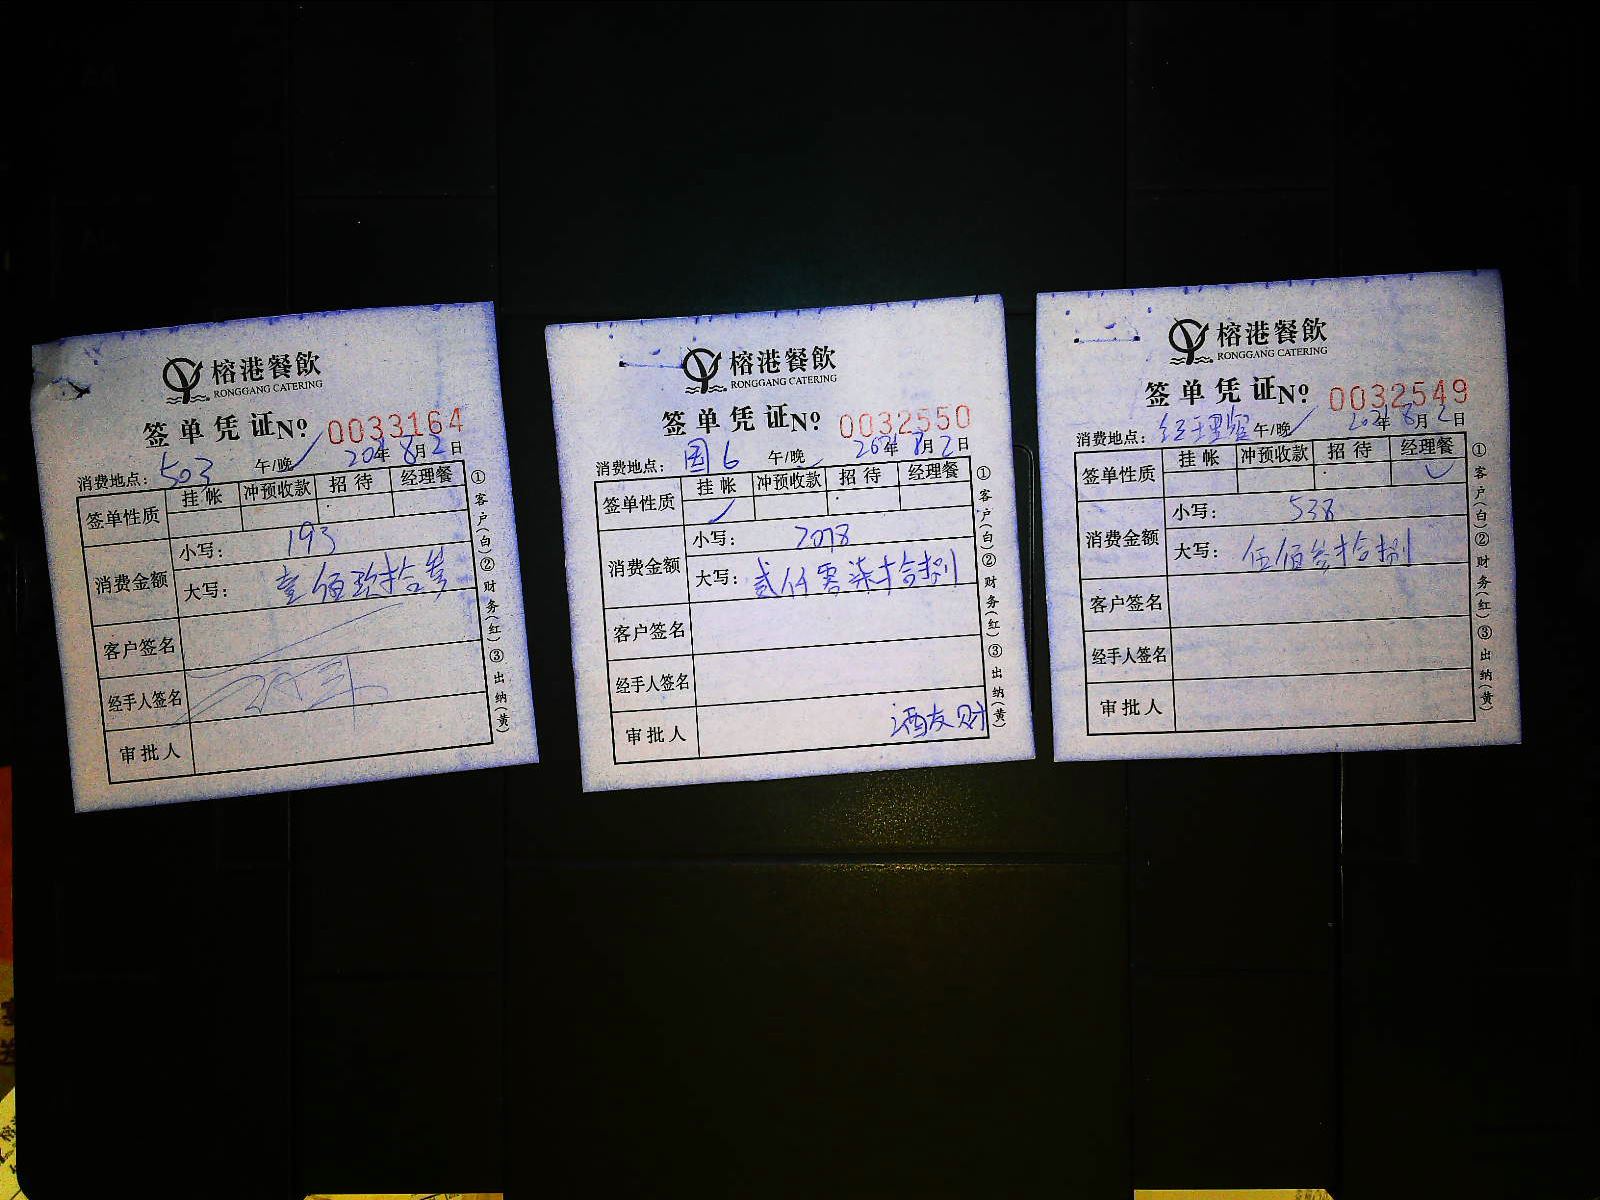 榕港餐飲
RONGGANG CATERING
签单凭证 № 0033164
消费地点: 503 午/晚 年8月2日
签单性质 挂帐 冲预收款 招待 经理餐
消费金额 小写: 193
大写: 壹佰玖拾叁
客户签名
经手人签名
审批人
①客户(白)②财务(红)③出纳(黄)
榕港餐飲
RONGGANG CATERING
签单凭证 № 0032550
消费地点: 园6 午/晚 年8月2日
签单性质 挂帐 冲预收款 招待 经理餐
消费金额 小写: 2078
大写: 贰仟零柒拾捌
客户签名
经手人签名
审批人 酒友财
①客户(白)②财务(红)③出纳(黄)
榕港餐飲
RONGGANG CATERING
签单凭证 № 0032549
消费地点: 经理 午/晚 年8月2日
签单性质 挂帐 冲预收款 招待 经理餐
消费金额 小写: 538
大写: 伍佰叁拾捌
客户签名
经手人签名
审批人
①客户(白)②财务(红)③出纳(黄)